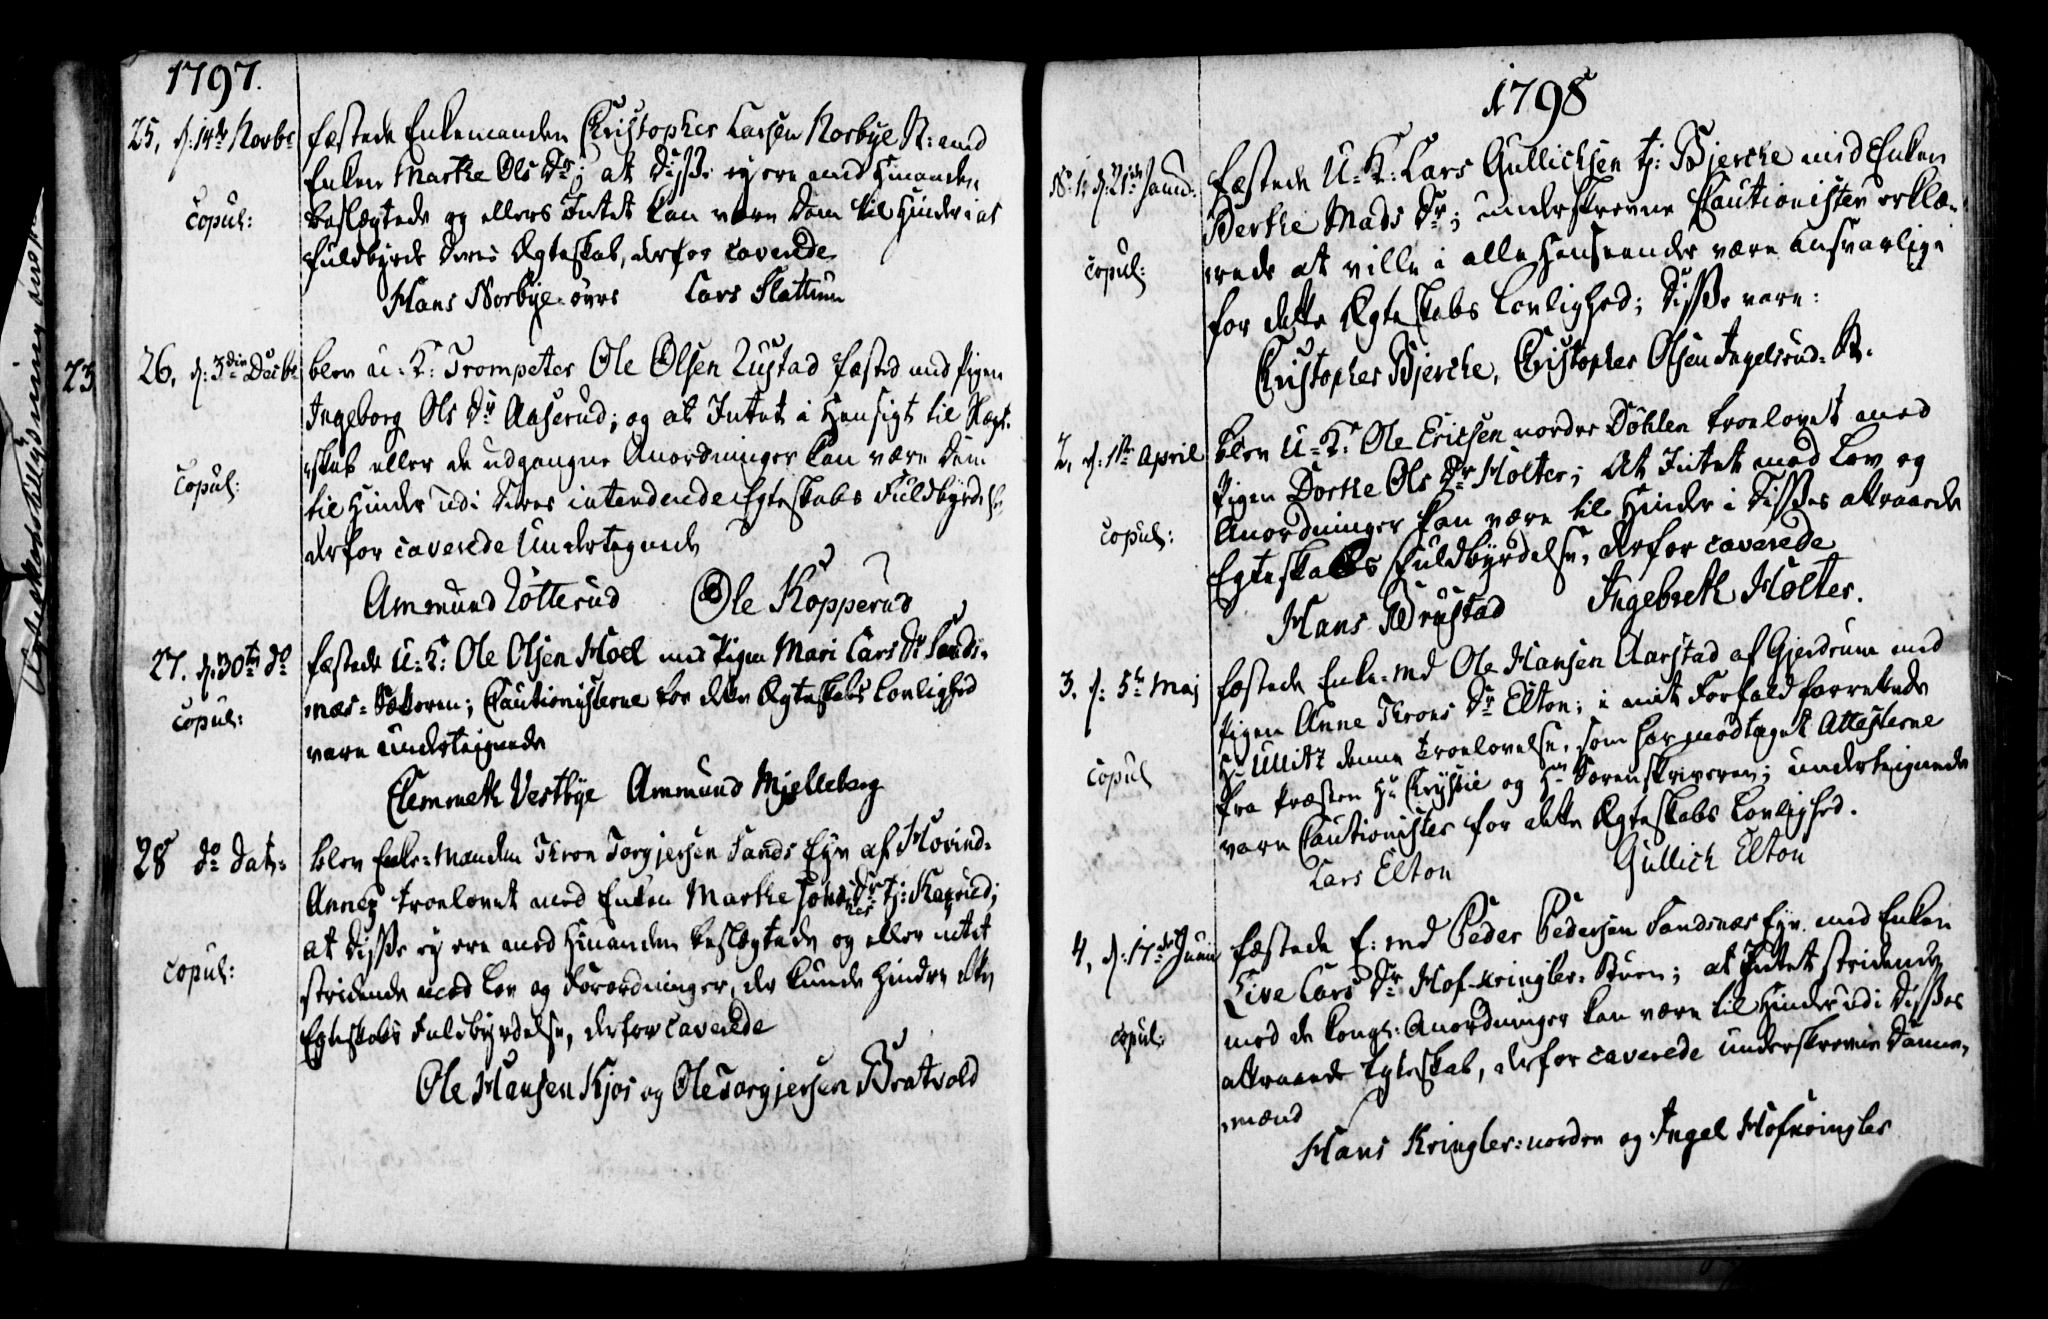 1797.
25, d: 14de Novbr fæstede Enkemanden Christopher Larsen Norbye N: med
Enken Marthe Ols Dr; at Disse ey ere med Hinanden
copul: beslægtede og ellers Intet kan være Dem til Hinder i at
fuldbyrde Deres Ægteskab, derfor caverede
Hans Norbye øvre Lars Flattum
23
26, d: 3die Decbr blev U: K: Trompeter Ole Olsen Lustad fæsted med Pigen
Ingeborg Ols Dr Aaserud; og at Intet i Hensigt til Slægt-
skab eller de udgangne Anordninger kan være Dem
copul: til Hinder udi Deres intenderede Egteskabs Fuldbyrdelse,
derfor caverede Undertegnede
Ammund Lötterud Ole Kopperud
27. d. 30te do fæstede U: K: Ole Olsen Hoel med Pigen Mari Lars Dr Sands-
næs-Sæteren; Cautionisterne for dette Ægteskabs Lovlighed
copul: vare undertegnede
Clemmeth Vestbye Ammund Mjelleberg
28 do dato: blev Enke-Manden Thron Torgjersen Sands Eyn af Hovind-
Annex troelovet med Enken Marthe Johannes Dr tj:
at Disse ey ere med Hinanden beslægtede og eller intet
copul: stridende med Lov og Forordninger, der kunde hindre dette
Egteskabs Fuldbyrdelse, derfor caverede
Ole Hansen Kjos og Ole Torgjersen Bratvold
1798
No: 1. d: 21de Janu: fæstede U: K: Lars Gullichsen tj: Bjerche med Enken
Berthe Mads Dr; underskrevne Cautionister erklæ-
copul: rede at ville i alle Henseender være ansvarlige
for dette Ægteskabs Lovlighed; Disse vare:
Christopher Bjerche, Christopher Olsen Ingelsrud N.
2, d: 1te April blev U: K: Ole Ericsen nordre Döhlen troelovet med
Pigen Dorthe Ols Dr Holter; At Intet mod Lov og
copul: Anordninger kan være til Hinder i Disses attraaede
Egteskabs Fuldbyrdelse, derfor caverede
Hans Brustad Ingebreth Holter.
3. d: 5te Maj fæstede Enke-md Ole Hansen Aarstad af Gjerdrum med
Pigen Anne Throns Dr Elton; i mit Forfald forrettede
Hr Ullitz denne Troelovelse, som har modtaget Attesterne
copul fra Præsten Hr Chrystie og Hr Sorenskriveren; undertegnede
vare Cautionister for dette Ægteskabs Lovlighed.
Lars Elton Gullich Elton
4, d: 17de Junii fæstede E: md Peder Pedersen Sandsnæs Eyn. med Enken
Live Lars Dr Hof-kringler-Stuen; at Intet stridende
copul: mod de Kongl: Anordninger kan være til Hinder udi Disses
attraaede Egteskab, derfor caverede underskrevne Danne-
mænd
Hans Kringler-nordre og Ingel Hofkringler